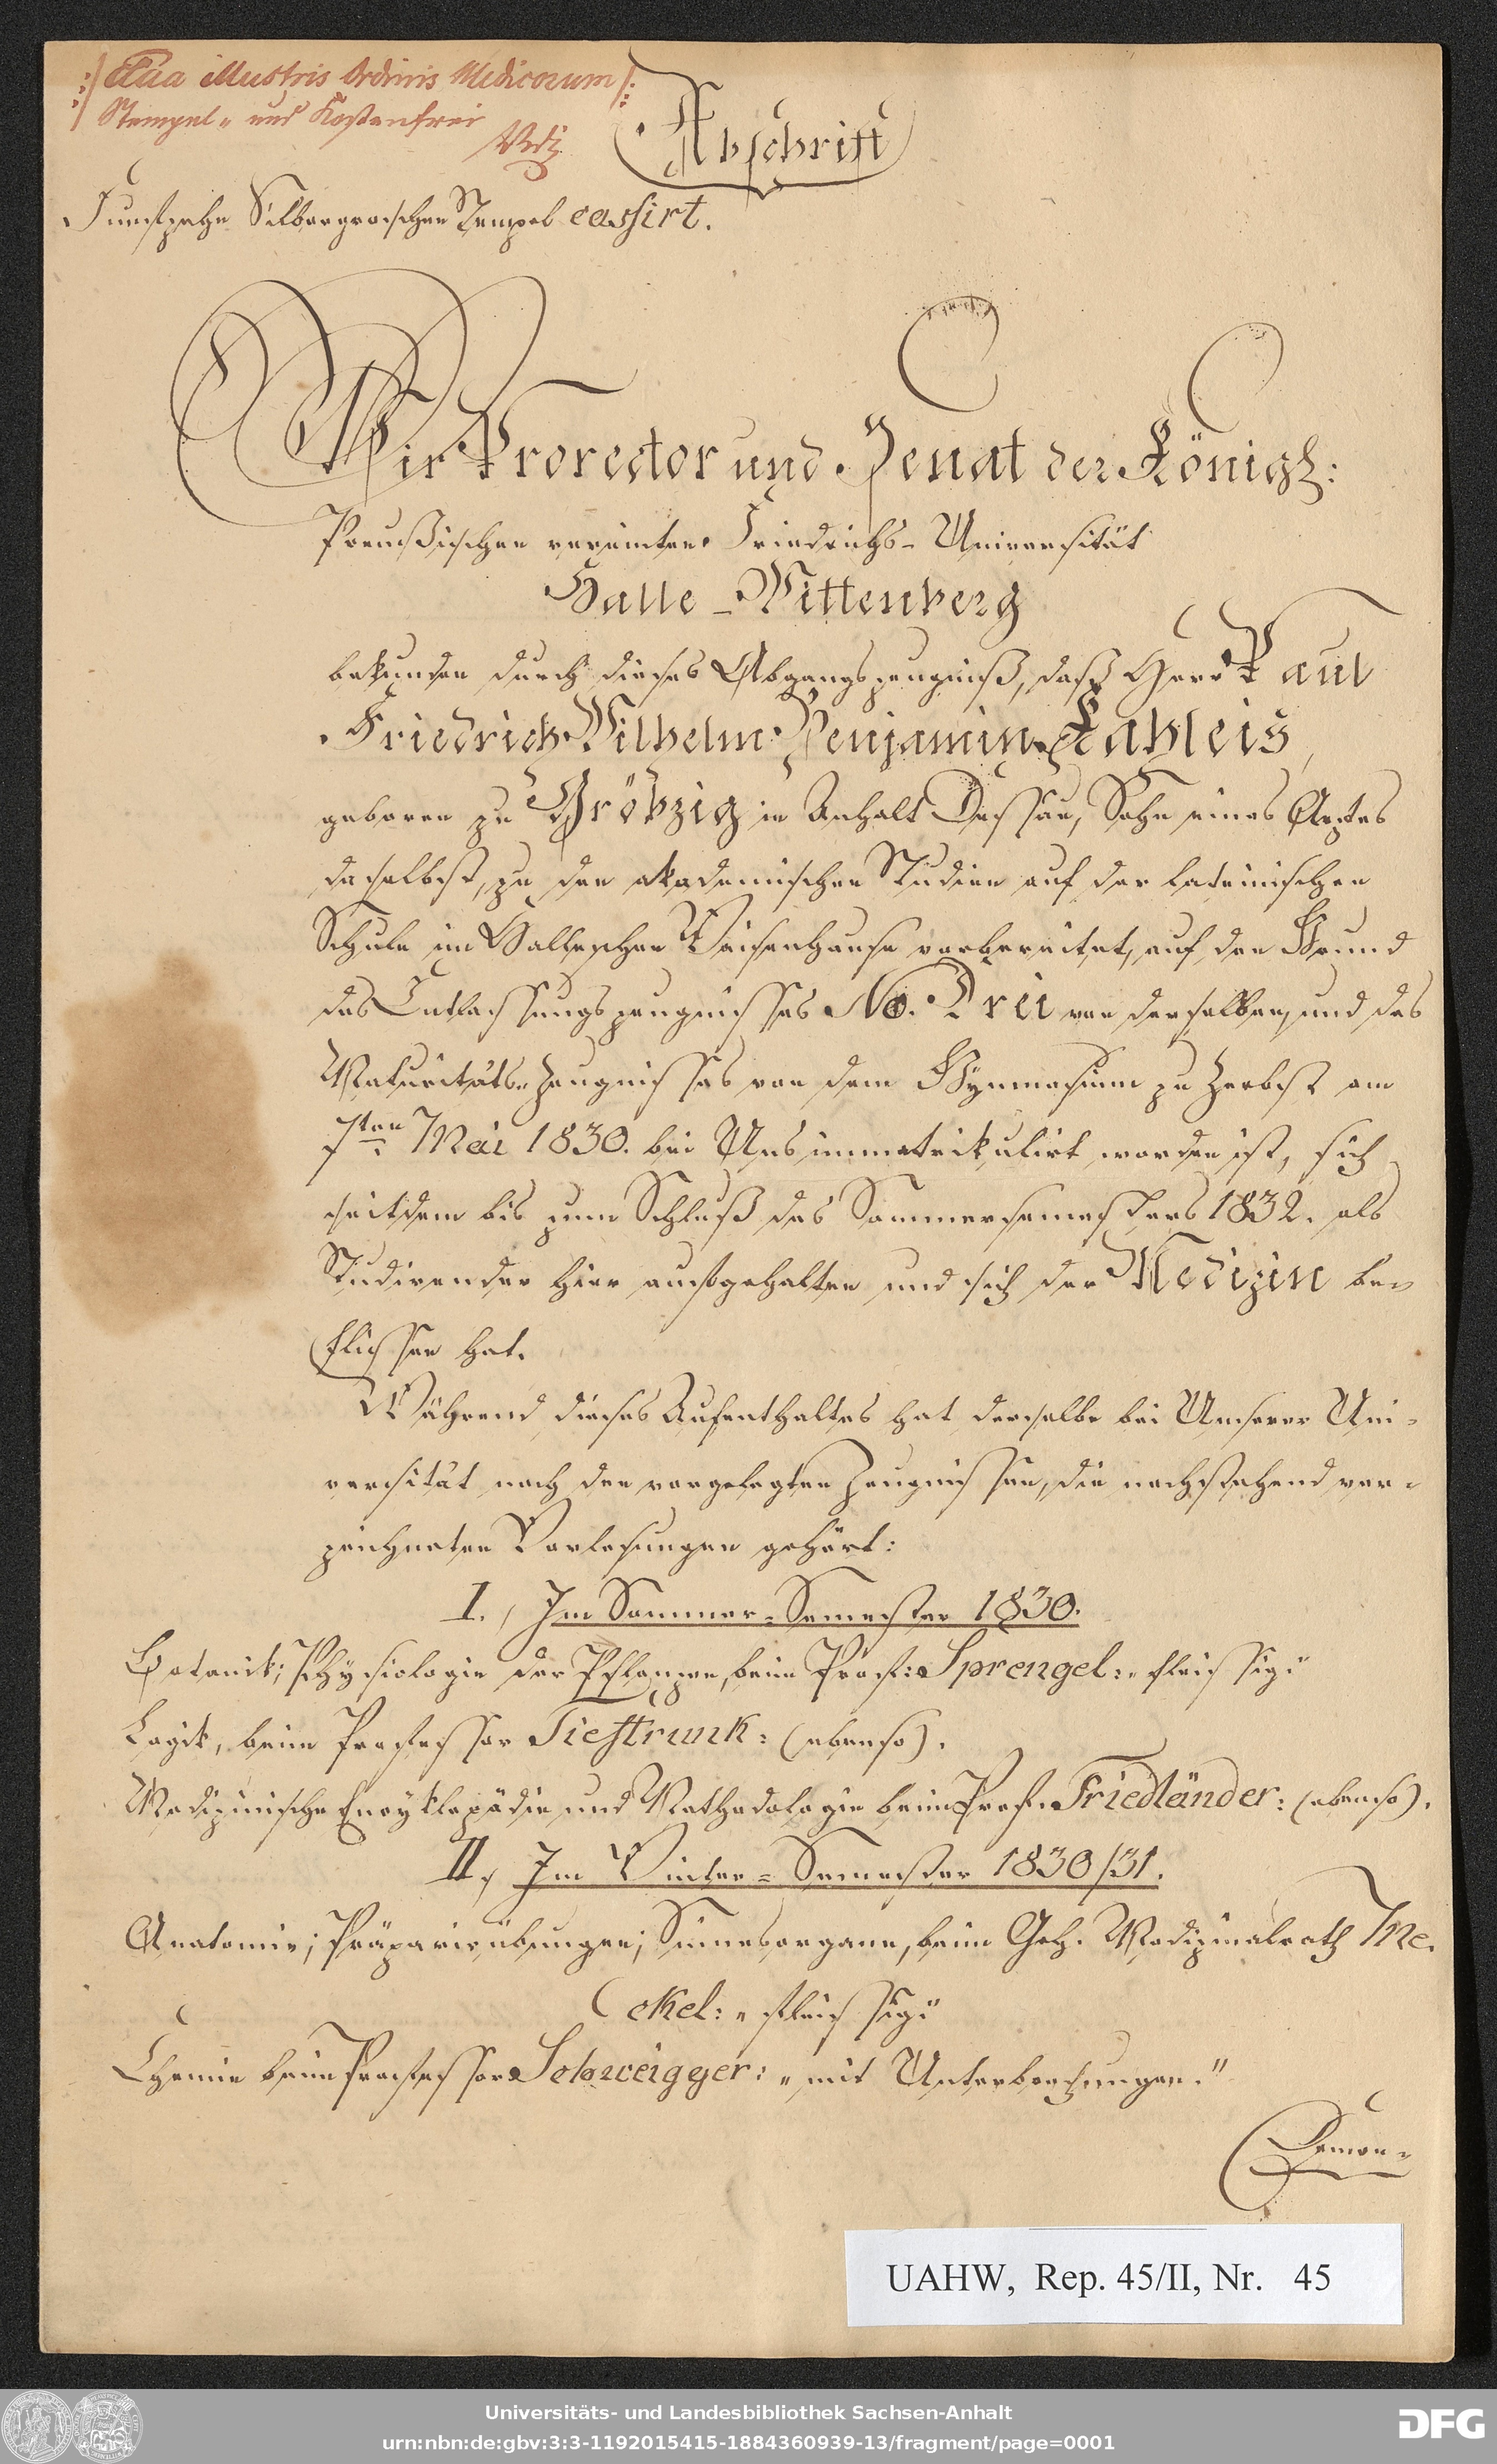 :/ Acta illustris Ordinis Medicorum /:
Stempel- und Kostenfrei
Abschrift
Funfzehn Silbergroschen Stempel cassirt.
Wir Prorector und Senat der Königl:
Preußischen vereinten Friedrichs-Universität
Halle-Wittenberg
bekunden durch dieses Abgangszeugniß, daß Herr Paul
Friedrich Wilhelm Benjamin Kahleis,
geboren zu Gröbzig in Anhalt Dessau, Sohn eines Arztes
daselbst, zu den akademischen Studien auf der lateinischen
Schule im Halleschen Waisenhause vorbereitet, auf den Grund
des Entlassungszeugnisses No. Drei von derselben, und des
Maturitäts-Zeugnisses von dem Gymnasium zu Zerbst am
7ten Mai 1830. bei Uns immatrikulirt worden ist, sich
seitdem bis zum Schluß des Sommersemesters 1832. als
Studirender hier aufgehalten und sich der Medizin be-
flissen hat.
Während dieses Aufenthaltes hat derselbe bei Unserer Uni-
versität nach den vorgelegten Zeugnissen, die nachstehend ver-
zeichneten Vorlesungen gehört:
I., Im Sommer-Semester 1830.
Botanik; Physiologie der Pflanzen, beim Prof: Sprengel: „fleissig“
Logik, beim Professor Tieftrunk: (ebenso).
Medizinische Encyklopädie und Methodologie beim Prof. Friedländer: (ebenso).
II., Im Winter-Semester 1830/31.
Anatomie; Präparirübungen; Sinnesorgane, beim Geh. Medizinalrath Me-
ckel: „fleissig“
Chemie beim Professor Schweigger: „mit Unterbrechungen.“
Demon-
UAHW, Rep. 45/II, Nr. 45
Universitäts- und Landesbibliothek Sachsen-Anhalt
urn:nbn:de:gbv:3:3-1192015415-1884360939-13/fragment/page=0001
DFG